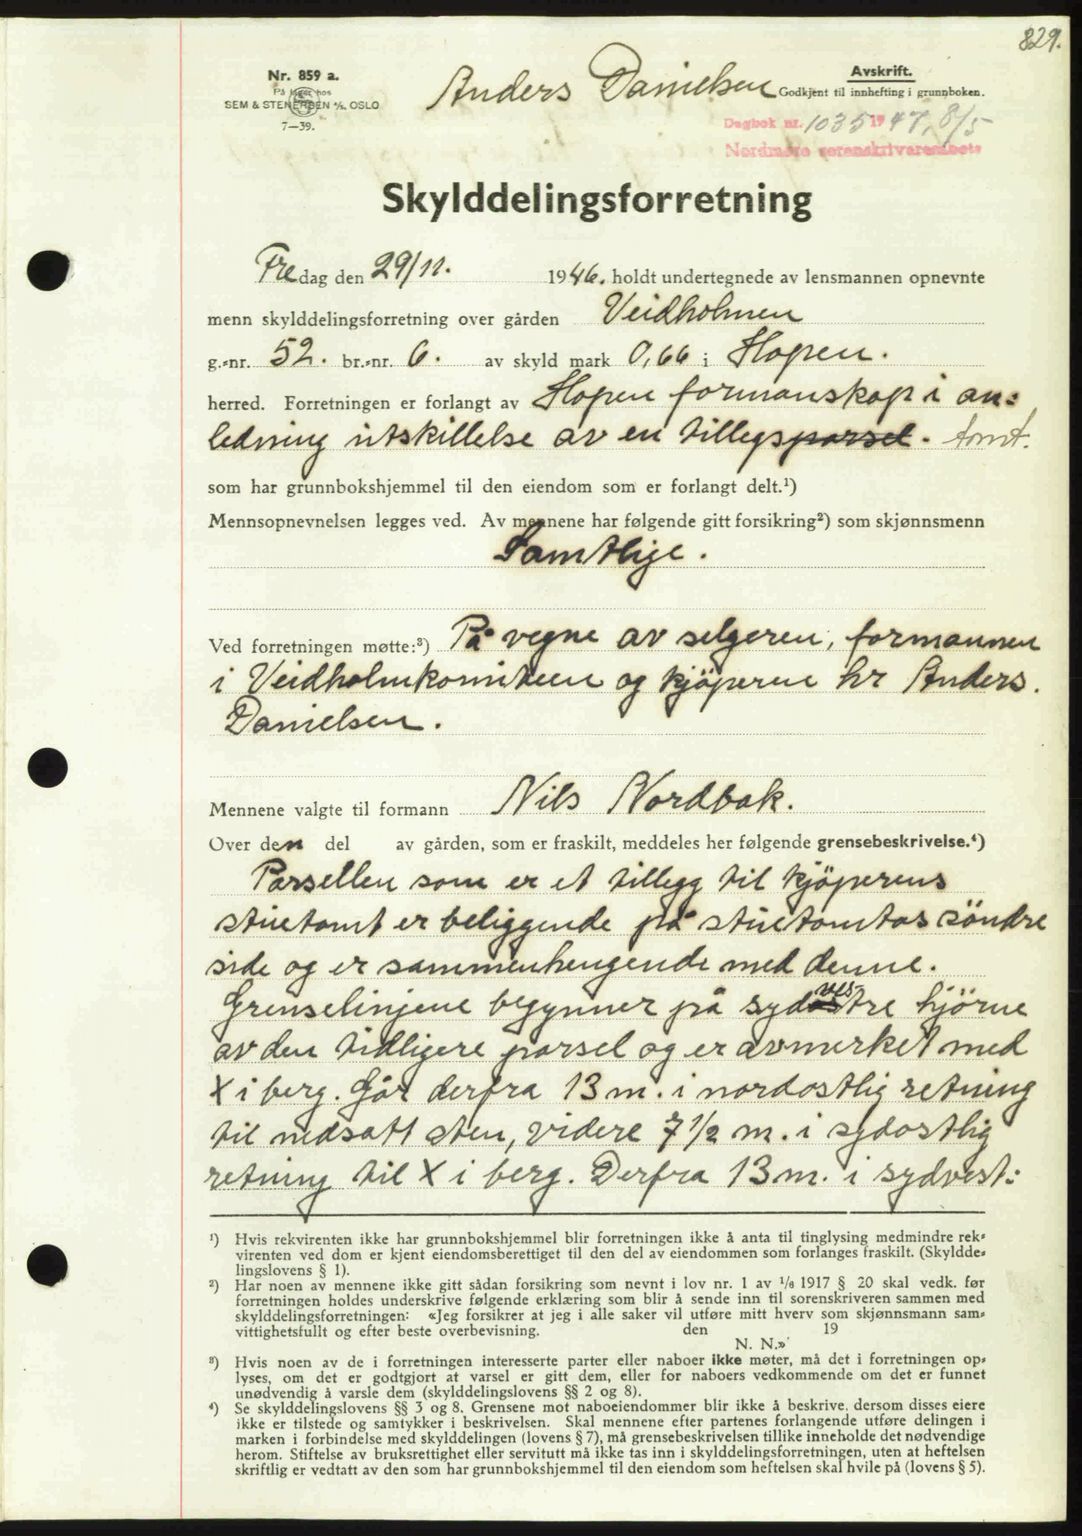 829.
Nr. 859 a.
På lager hos
SEM & STENERSEN A/S, OSLO
7—39.
Anders Danielsen
Avskrift.
Godkjent til innhefting i grunnboken.
Dagbok nr. 1035 19 47, 8/5
Nordmøre sorenskriverembete
Skylddelingsforretning
Fredag den 29/11. 1946. holdt undertegnede av lensmannen opnevnte
menn skylddelingsforretning over gården Veidholmen
g.-nr. 52. br.-nr. 6. av skyld mark 0,66 i Hopen.
herred. Forretningen er forlangt av Hopen formanskap i an=
ledning utskillelse av en tillegsparsel. tomt.
som har grunnbokshjemmel til den eiendom som er forlangt delt.¹)
Mennsopnevnelsen legges ved. Av mennene har følgende gitt forsikring²) som skjønnsmenn
Samtlige.
Ved forretningen møtte:³) På vegne av selgeren, formannen
i Veidholmkomiteen og kjöperne hr Anders
Danielsen.
Mennene valgte til formann Nils Nordbak.
Over den del av gården, som er fraskilt, meddeles her følgende grensebeskrivelse.⁴)
Parsellen som er et tillegg til kjöperens
stuetomt er beliggende på stuetomtas söndre
side og er sammenhengende med denne.
Grenselinjene begynner på sydvestre hjörne
av den tidligere parsel og er avmerket med
X i berg. Går derfra 13 m. i nordostlig retning
til nedsatt sten, videre 7 1/2 m. i sydostlig
retning til X i berg. Derfra 13 m. i sydvest:
¹) Hvis rekvirenten ikke har grunnbokshjemmel blir forretningen ikke å anta til tinglysing medmindre rek-
virenten ved dom er kjent eiendomsberettiget til den del av eiendommen som forlanges fraskilt. (Skyldde-
lingslovens § 1).
²) Har noen av mennene ikke gitt sådan forsikring som nevnt i lov nr. 1 av 1/6 1917 § 20 skal vedk. før
forretningen holdes underskrive følgende erklæring som blir å sende inn til sorenskriveren sammen med
skylddelingsforretningen: «Jeg forsikrer at jeg i alle saker vil utføre mitt hverv som skjønnsmann sam-
vittighetsfullt og efter beste overbevisning. den 19
N. N.»
³) Hvis noen av de i forretningen interesserte parter eller naboer ikke møter, må det i forretningen op-
lyses, om det er godtgjort at varsel er gitt dem, eller for naboers vedkommende om det er funnet
unødvendig å varsle dem (skylddelingslovens §§ 2 og 8).
⁴) Se skylddelingslovens §§ 3 og 8. Grensene mot naboeiendommer blir ikke å beskrive, dersom disses eiere
ikke er tilstede og samtykker i beskrivelsen. Skal mennene efter partenes forlangende utføre delingen i
marken i forbindelse med skylddelingen (lovens § 7), må grensebeskrivelsen tillike inneholde det nødvendige
herom. Stiftelse av bruksrettighet eller servitutt må ikke tas inn i skylddelingsforretningen, uten at heftelsen
skriftlig er vedtatt av den som har grunnbokshjemmel til den eiendom som heftelsen skal hvile på (lovens § 5).